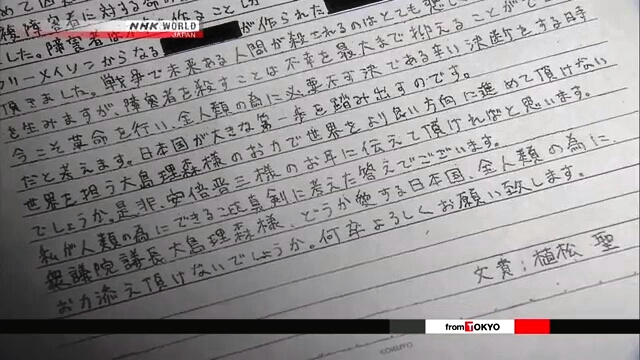 NHK WORLD
JAPAN
が作られた
フリーメイソンからなる
した。戦争で未来ある人間が殺されるのはとても悲し
頂きました。
を生みますが、障害者を殺すことは不幸を最大まで抑えることが
今こそ革命を行い、全人類の為に必要不可欠である辛い決断をする時
だと考えます。日本国が大きな第一歩を踏み出すのです。
世界を担う大島理森様のお力で世界をより良い方向に進めて頂けない
でしょうか。是非、安倍晋三様のお耳に伝えて頂ければと思います。
私が人類の為にできることを真剣に考えた答えでございます。
衆議院議長大島理森様、どうか愛する日本国、全人類の為に、
お力添え頂けないでしょうか。何卒よろしくお願い致します。
文責:植松 聖
from TOKYO
KOKUYO